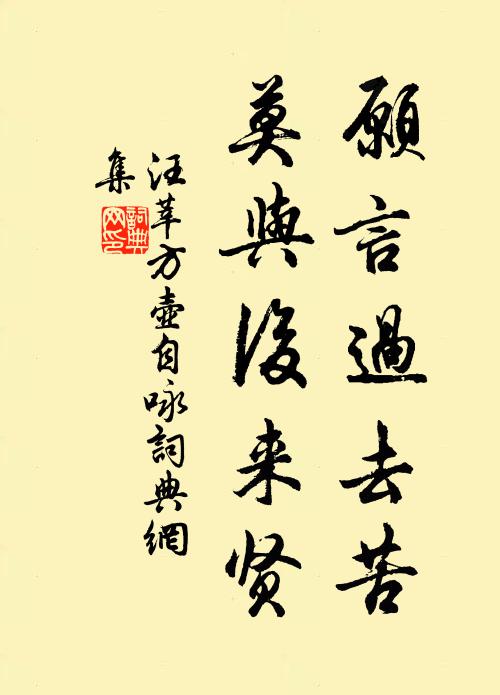 願言過去苦
莫與後来贤
汪莘方壺自咏詞典網
集
詞典
网印